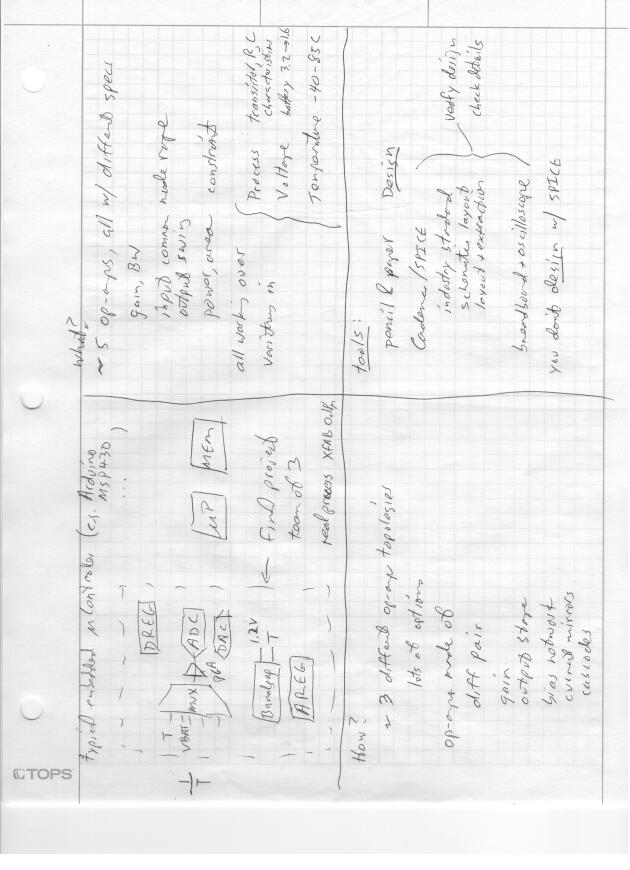 typical embedded µController (e.g. Arduino
MSP430
... )
DREG
VBAT
T
mux
ADC
PGA
DAC
µP
MEM
Bandgap
1.2V
T
AREG
← Final project
team of 3
real process XFAB
What?
~ 5 op-amps, all w/ different specs
gain, BW
input common mode range
output swing
power, area constraint
all working over
variations in
Process transistor, R, C
characteristics
Voltage battery 3.2→1.6
Temperature -40-85C
How?
~ 3 different op-amp topologies
lots of options
op-amps made of
diff pair
gain
output stage
bias network
current mirrors
cascodes
tools:
pencil & paper Design
Cadence/SPICE
industry standard
schematics layout
layout + extraction
verify design
check details
breadboard + oscilloscope
you don't design w/ SPICE
TOPS